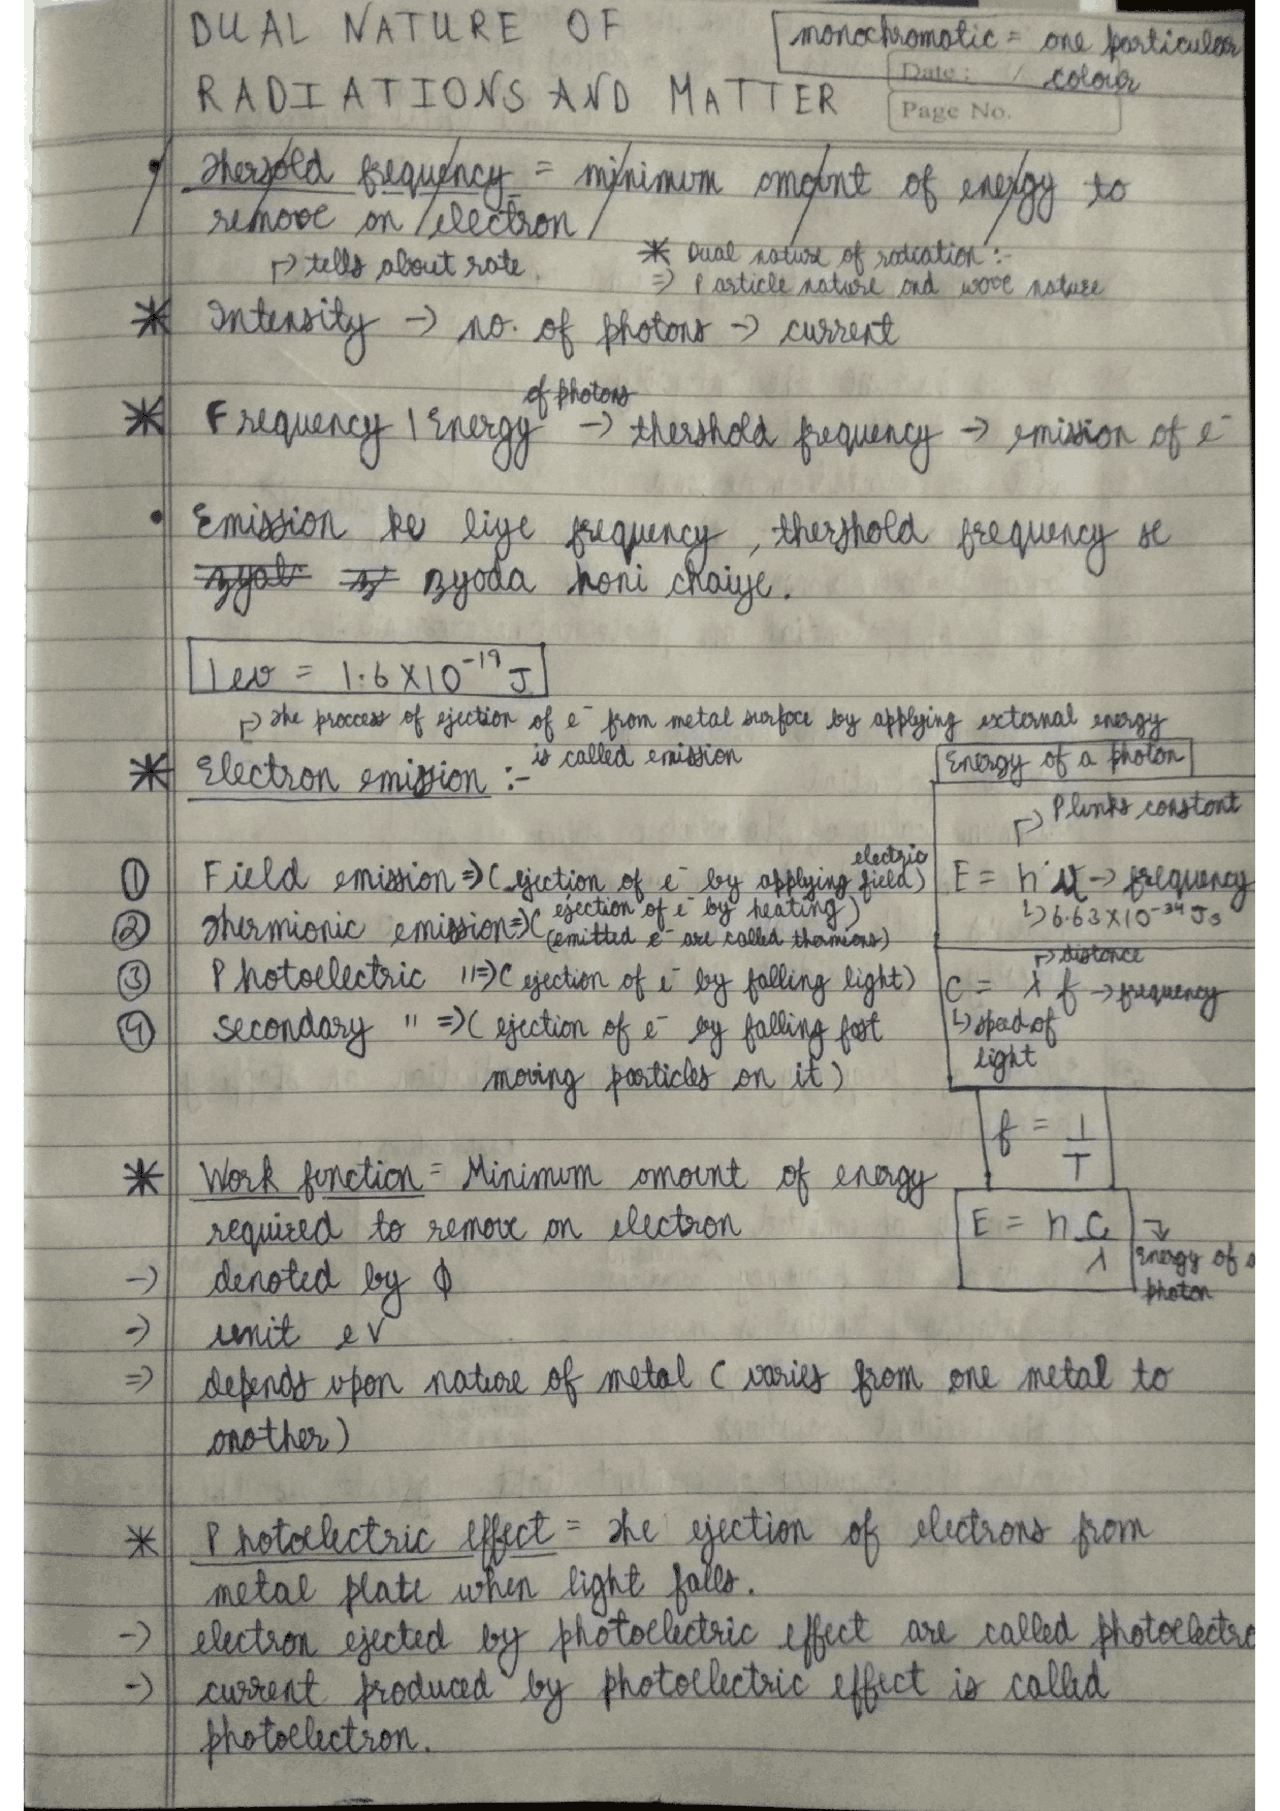 DUAL NATURE OF
RADIATIONS AND MATTER
monochromatic = one particular
colour
Date : /
Page No.
Thersold frequency = minimum amount of energy to
remove an electron
↱ tells about rate
* Dual nature of radiation :-
=> Particle nature and wave nature
* Intensity -> no. of photons -> current
of photons
* Frequency / Energy -> thershold frequency -> emission of e⁻
• Emission ke liye frequency, thershold frequency se
zyada honi chaiye.
1 ev = 1.6 X 10⁻¹⁹ J
↱ The proccess of ejection of e⁻ from metal surface by applying external energy
is called emission
* Electron emission :-
① Field emission => (ejection of e⁻ by applying electric field)
② Thermionic emission => (ejection of e⁻ by heating)
(emitted e⁻ are called thermions)
③ Photoelectric " => (ejection of e⁻ by falling light)
④ secondary " => (ejection of e⁻ by falling fast
moving particles on it)
Energy of a photon
↱ Planks constant
E = hν -> frequency
↳ 6.63 X 10⁻³⁴ Js
↱ distance
C = λ f -> frequency
↳ speed of
light
f = 1/T
E = h c/λ
Energy of a
photon
* Work function = Minimum amount of energy
required to remove an electron
-> denoted by ϕ
-> unit eV
=> depends upon nature of metal (varies from one metal to
another)
* Photoelectric effect = The ejection of electrons from
metal plate when light falls.
-> electron ejected by photoelectric effect are called photoelectro
-> current produced by photoelectric effect is called
photoelectron.